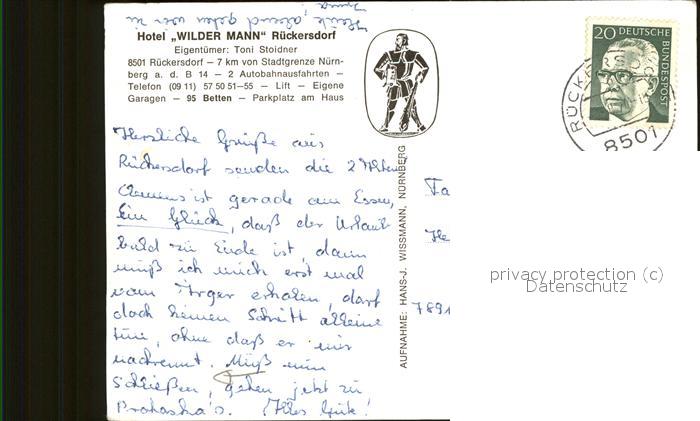 Heute abend gehen wir zu
Hotel „WILDER MANN" Rückersdorf
Eigentümer: Toni Stoidner
8501 Rückersdorf — 7 km von Stadtgrenze Nürn-
berg a. d. B 14 — 2 Autobahnausfahrten —
Telefon (09 11) 57 50 51—55 — Lift — Eigene
Garagen — 95 Betten — Parkplatz am Haus
20 DEUTSCHE BUNDESPOST
8501
Herzliche Grüße aus
Rückersdorf senden die 2 Alten
Clemens ist gerade am Essen,
Ein Glück, daß der Urlaub
bald zu Ende ist, dann
muß ich mich erst mal
vom Ärger erholen, darf
doch keinen Schritt alleine
tun, ohne daß er mir
nachrennt. Muß nun
schließen, gehen jetzt zu
Prohaska's. Alles Gute!
AUFNAHME: HANS-J. WISSMANN, NÜRNBERG
Fa
He
7891
privacy protection (c)
Datenschutz